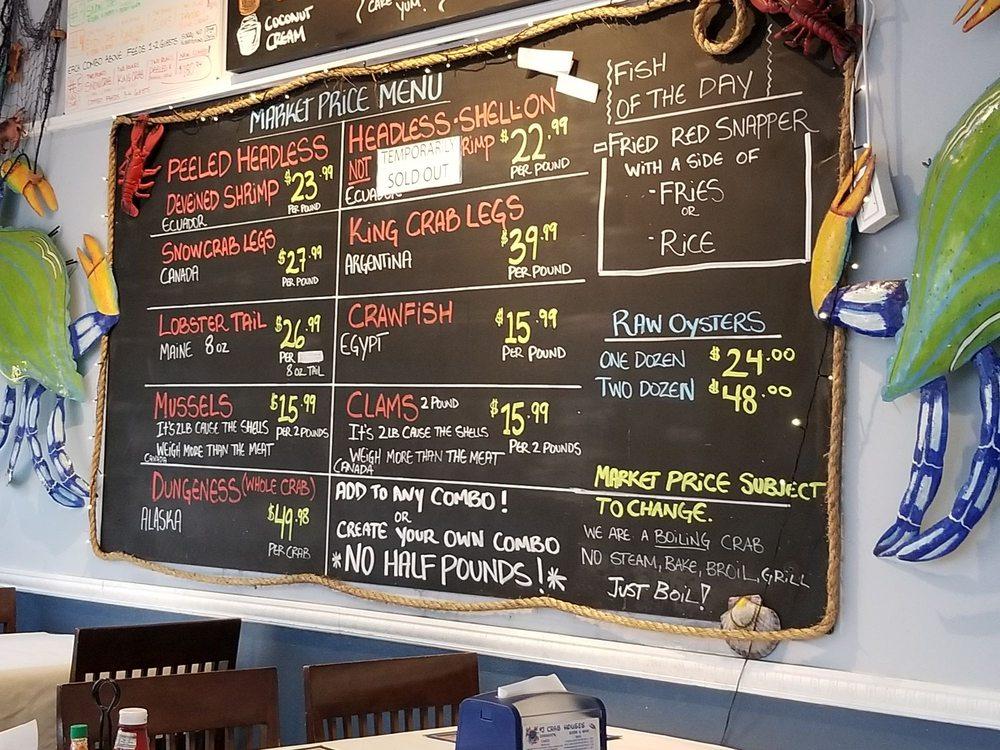 COCONUT
CREAM
CAKE
YUM.
EACH COMBO ABOVE FEEDS 1-2 GUESTS
MARKET PRICE MENU
PEELED HEADLESS
DEVEINED SHRIMP $23.99
PER POUND
ECUADOR
HEADLESS-SHELL-ON
NOT
TEMPORARILY
SOLD OUT
$22.99
PER POUND
SNOWCRAB LEGS
CANADA
$27.99
PER POUND
KING CRAB LEGS
ARGENTINA
$39.99
PER POUND
LOBSTER TAIL
MAINE 8 OZ
$26.99
PER
8 OZ TAIL
CRAWFISH
EGYPT
$15.99
PER POUND
MUSSELS $15.99
IT'S 2LB CAUSE THE SHELLS PER 2 POUNDS
WEIGH MORE THAN THE MEAT
CANADA
CLAMS 2 POUND $15.99
IT'S 2LB CAUSE THE SHELLS PER 2 POUNDS
WEIGH MORE THAN THE MEAT
CANADA
DUNGENESS (WHOLE CRAB)
ALASKA $49.98
PER CRAB
ADD TO ANY COMBO!
OR
CREATE YOUR OWN COMBO
*NO HALF POUNDS!*
FISH
OF THE DAY
-FRIED RED SNAPPER
WITH A SIDE OF
-FRIES
OR
-RICE
RAW OYSTERS
ONE DOZEN $24.00
TWO DOZEN $48.00
MARKET PRICE SUBJECT
TO CHANGE.
WE ARE A BOILING CRAB
NO STEAM, BAKE, BROIL, GRILL
JUST BOIL!